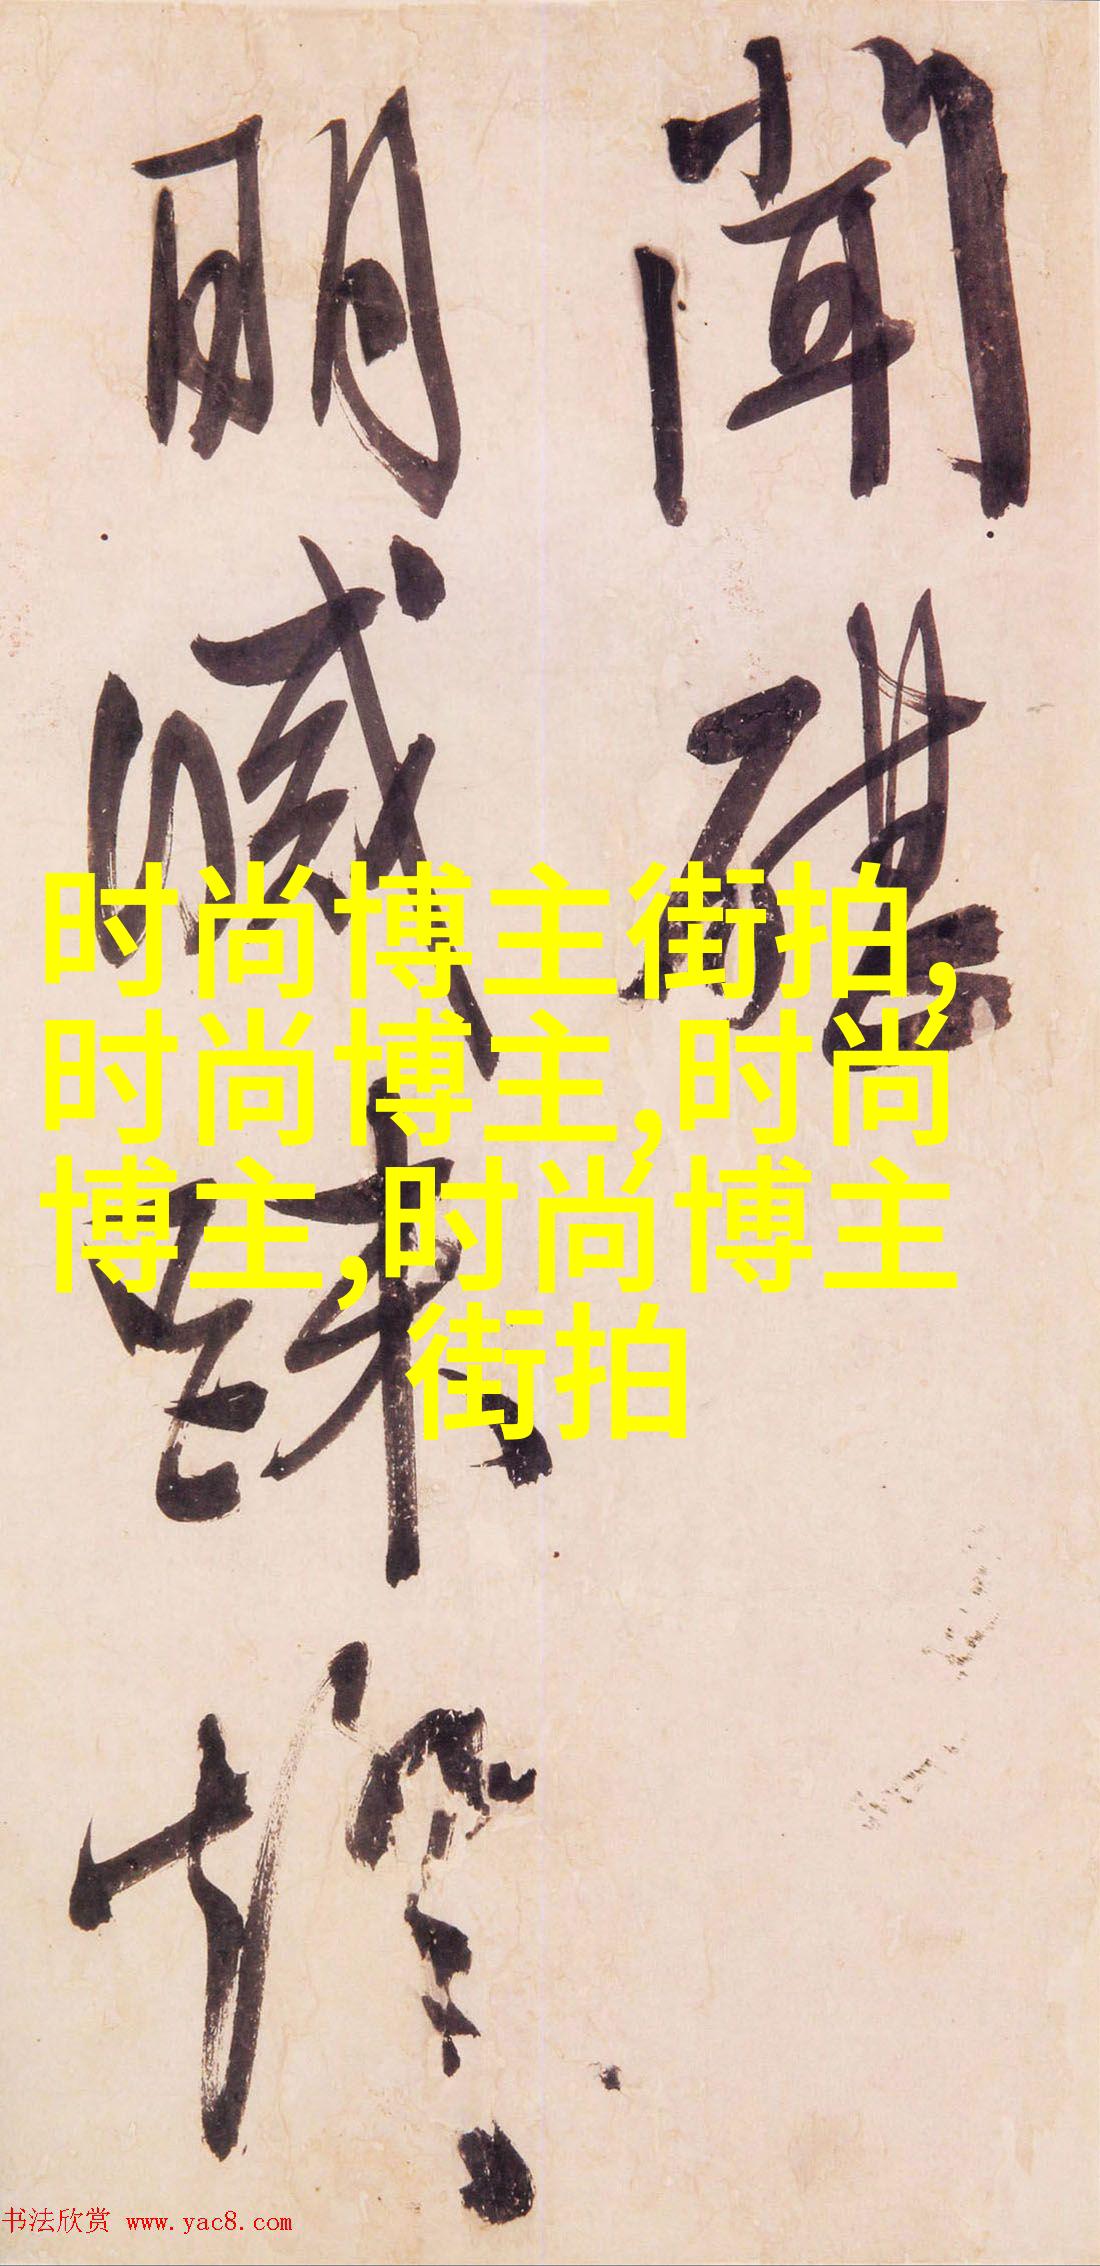 聞碪
明滅踈燈
时尚博主街拍,
时尚博主,时尚
博主,时尚博主
街拍
书法欣赏 www.yac8.com